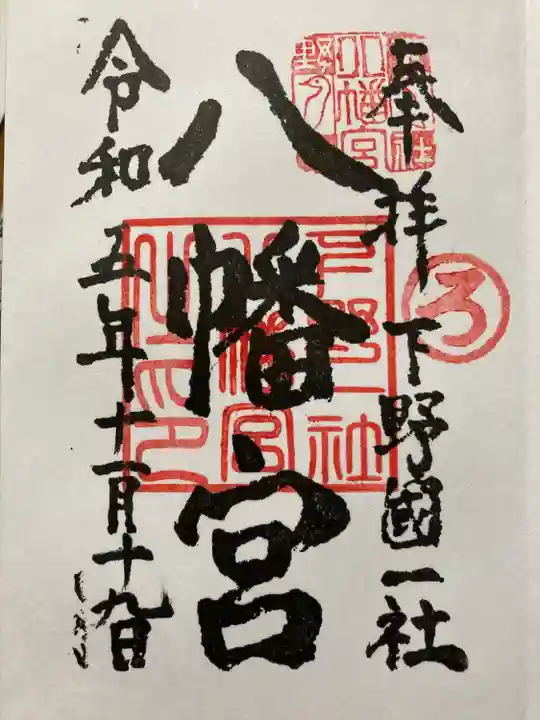 奉拝 下野國一社
八幡宮
令和五年十一月十九日
下野一社
八幡宮
之印
八幡宮